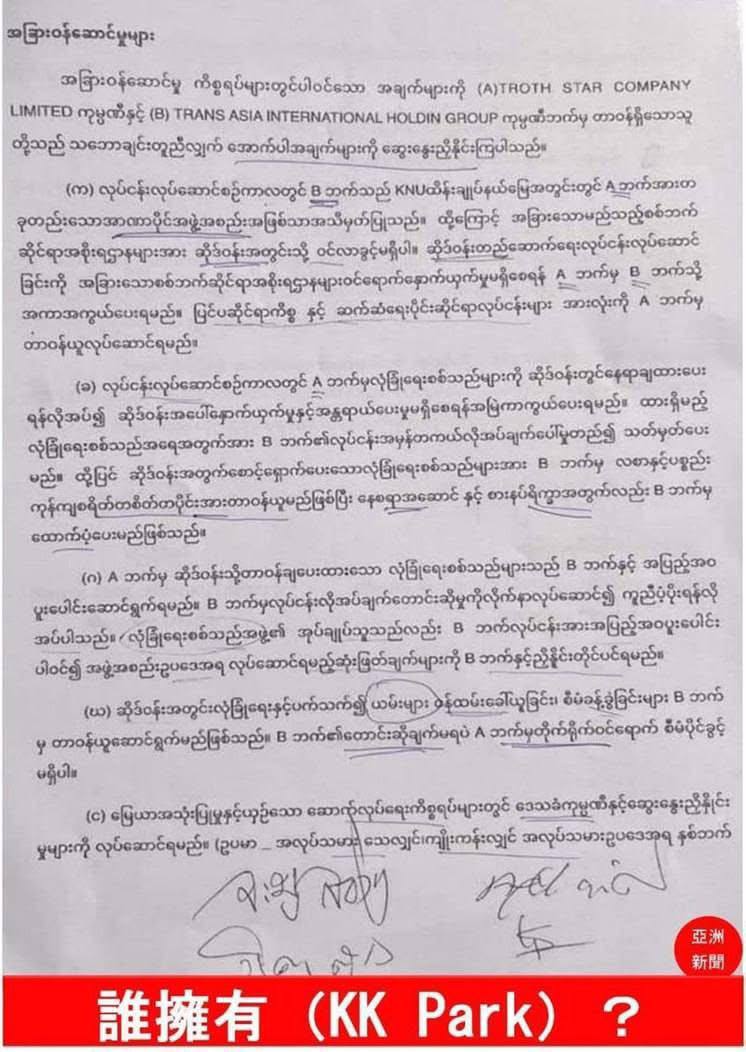 အခြားဝန်ဆောင်မှုများ
အခြားဝန်ဆောင်မှု ကိစ္စရပ်များတွင်ပါဝင်သော အချက်များကို (A)TROTH STAR COMPANY
LIMITED ကုမ္ပဏီနှင့် (B) TRANS ASIA INTERNATIONAL HOLDIN GROUP ကုမ္ပဏီဘက်မှ တာဝန်ရှိသောသူ
တို့သည် သဘောချင်းတူညီလျှက် အောက်ပါအချက်များကို ဆွေးနွေးညှိနှိုင်းကြပါသည်။
(က) လုပ်ငန်းလုပ်ဆောင်စဉ်ကာလတွင် B ဘက်သည် KNUထိန်းချုပ်နယ်မြေအတွင်းတွင် A ဘက်အားတ
ခုတည်းသောအာဏာပိုင်အဖွဲ့အစည်းအဖြစ်သာအသိမှတ်ပြုသည်။ ထို့ကြောင့် အခြားသောမည်သည့်စစ်ဘက်
ဆိုင်ရာအစိုးရဌာနများအား ဆိုဒ်ဝန်းအတွင်းသို့ ဝင်လာခွင့်မရှိပါ။ ဆိုဒ်ဝန်းတည်ဆောက်ရေးလုပ်ငန်းလုပ်ဆောင်
ခြင်းကို အခြားသောစစ်ဘက်ဆိုင်ရာအစိုးရဌာနများဝင်ရောက်နှောက်ယှက်မှုမရှိစေရန် A ဘက်မှ B ဘက်သို့
အကာအကွယ်ပေးရမည်။ ပြင်ပဆိုင်ရာကိစ္စ နှင့် ဆက်ဆံရေးပိုင်းဆိုင်ရာလုပ်ငန်းများ အားလုံးကို A ဘက်မှ
တာဝန်ယူလုပ်ဆောင်ရမည်။
(ခ) လုပ်ငန်းလုပ်ဆောင်စဉ်ကာလတွင် A ဘက်မှလုံခြုံရေးစစ်သည်များကို ဆိုဒ်ဝန်းတွင်နေရာချထားပေး
ရန်လိုအပ်၍ ဆိုဒ်ဝန်းအပေါ်နှောက်ယှက်မှုနှင့်အန္တရာယ်ပေးမှုမရှိစေရန်အမြဲကာကွယ်ပေးရမည်။ ထားရှိမည့်
လုံခြုံရေးစစ်သည်အရေအတွက်အား B ဘက်၏လုပ်ငန်းအမှန်တကယ်လိုအပ်ချက်ပေါ်မူတည်၍ သတ်မှတ်ပေး
မည်။ ထို့ပြင် ဆိုဒ်ဝန်းအတွက်စောင့်ရှောက်ပေးသောလုံခြုံရေးစစ်သည်များအား B ဘက်မှ လစာနှင့်ပစ္စည်း
ကုန်ကျစရိတ်တစိတ်တပိုင်းအားတာဝန်ယူမည်ဖြစ်ပြီး နေစရာအဆောင် နှင့် စားနပ်ရိက္ခာအတွက်လည်း B ဘက်မှ
ထောက်ပံ့ပေးမည်ဖြစ်သည်။
(ဂ) A ဘက်မှ ဆိုဒ်ဝန်းသို့တာဝန်ချပေးထားသော လုံခြုံရေးစစ်သည်များသည် B ဘက်နှင့် အပြည့်အဝ
ပူးပေါင်းဆောင်ရွက်ရမည်။ B ဘက်မှလုပ်ငန်းလိုအပ်ချက်တောင်းဆိုမှုကိုလိုက်နာလုပ်ဆောင်၍ ကူညီပံ့ပိုးရန်လို
အပ်ပါသည်။ လုံခြုံရေးစစ်သည်အဖွဲ့၏ အုပ်ချုပ်သူသည်လည်း B ဘက်လုပ်ငန်းအားအပြည့်အဝပူးပေါင်း
ပါဝင်၍ အဖွဲ့အစည်းဥပဒေအရ လုပ်ဆောင်ရမည့်ဆုံးဖြတ်ချက်များကို B ဘက်နှင့်ညှိနှိုင်းတိုင်ပင်ရမည်။
(ဃ) ဆိုဒ်ဝန်းအတွင်းလုံခြုံရေးနှင့်ပက်သက်၍ ယမ်းများ ဝန်ထမ်းခေါ်ယူခြင်း၊ စီမံခန့်ခွဲခြင်းများ B ဘက်
မှ တာဝန်ယူဆောင်ရွက်မည်ဖြစ်သည်။ B ဘက်၏တောင်းဆိုချက်မရပဲ A ဘက်မှတိုက်ရိုက်ဝင်ရောက် စီမံပိုင်ခွင့်
မရှိပါ။
(င) မြေယာအသုံးပြုမှုနှင့်ယှဉ်သော ဆောက်လုပ်ရေးကိစ္စရပ်များတွင် ဒေသခံကုမ္ပဏီနှင့်ဆွေးနွေးညှိနှိုင်း
မှုများကို လုပ်ဆောင်ရမည်။ (ဥပမာ _ အလုပ်သမား သေလျှင်၊ကျိုးကန်းလျှင် အလုပ်သမားဥပဒေအရ နှစ်ဘက်
亞洲
新聞
誰擁有 (KK Park) ?